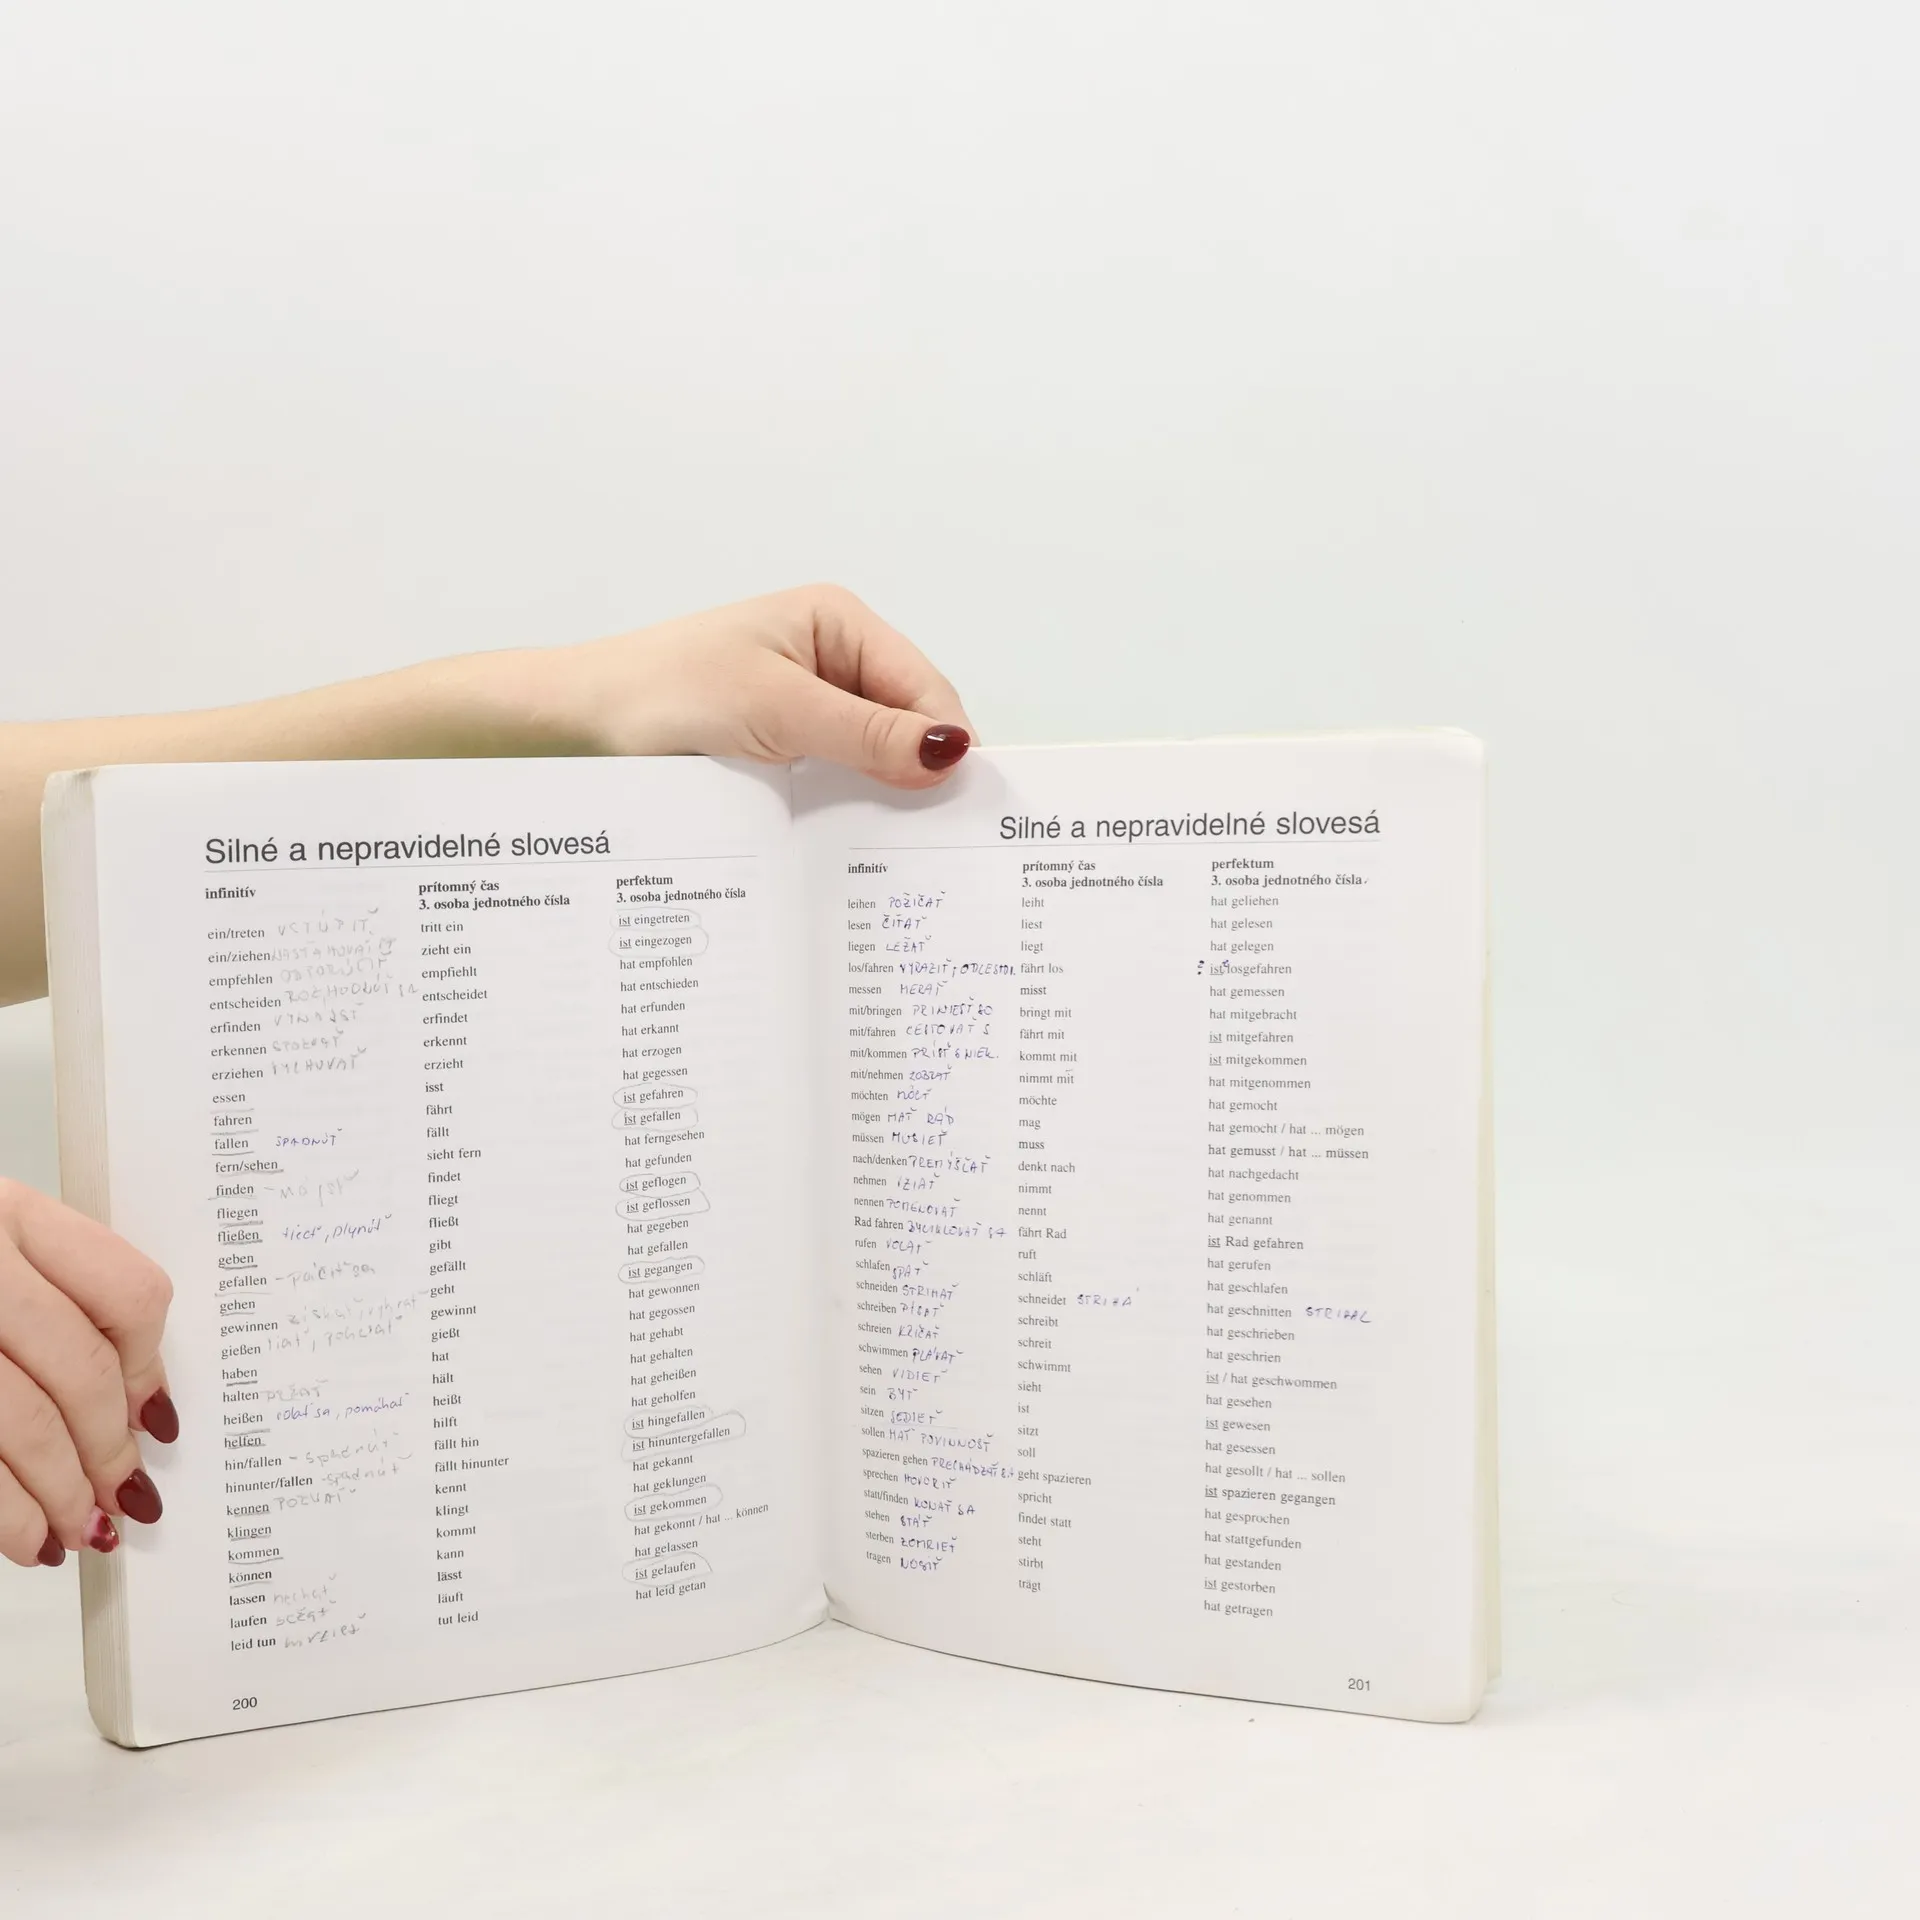 Silné a nepravidelné slovesá
infinitív prítomný čas perfektum
3. osoba jednotného čísla 3. osoba jednotného čísla
ein/treten VSTÚPIŤ tritt ein ist eingetreten
ein/ziehen zieht ein ist eingezogen
empfehlen empfiehlt hat empfohlen
entscheiden entscheidet hat entschieden
erfinden erfindet hat erfunden
erkennen erkennt hat erkannt
erziehen erzieht hat erzogen
essen isst hat gegessen
fahren fährt ist gefahren
fallen SPADNÚŤ fällt ist gefallen
fern/sehen sieht fern hat ferngesehen
finden findet hat gefunden
fliegen fliegt ist geflogen
fließen tiecť, plynúť fließt ist geflossen
geben gibt hat gegeben
gefallen - páčiť sa gefällt hat gefallen
gehen geht ist gegangen
gewinnen získať, vyhrať gewinnt hat gewonnen
gießen liať, gießt hat gegossen
haben hat hat gehabt
halten hält hat gehalten
heißen volať sa, pomáhať heißt hat geheißen
helfen hilft hat geholfen
hin/fallen - spadnúť fällt hin ist hingefallen
hinunter/fallen - spadnúť fällt hinunter ist hinuntergefallen
kennen POZNAŤ kennt hat gekannt
klingen klingt hat geklungen
kommen kommt ist gekommen
können kann hat gekonnt / hat ... können
lassen nechať lässt hat gelassen
laufen läuft ist gelaufen
leid tun tut leid hat leid getan
200
Silné a nepravidelné slovesá
infinitív prítomný čas perfektum
3. osoba jednotného čísla 3. osoba jednotného čísla
leihen POŽIČAŤ leiht hat geliehen
lesen ČÍTAŤ liest hat gelesen
liegen LEŽAŤ liegt hat gelegen
los/fahren VYRAZIŤ, fährt los ist losgefahren
messen MERAŤ misst hat gemessen
mit/bringen PRINIESŤ SO bringt mit hat mitgebracht
mit/fahren CESTOVAŤ S fährt mit ist mitgefahren
mit/kommen PRÍSŤ S NIEK. kommt mit ist mitgekommen
mit/nehmen ZOBRAŤ nimmt mit hat mitgenommen
möchten möchte hat gemocht
mögen MAŤ RÁD mag hat gemocht / hat ... mögen
müssen MUSIEŤ muss hat gemusst / hat ... müssen
nach/denken PREMÝŠĽAŤ denkt nach hat nachgedacht
nehmen nimmt hat genommen
nennen POMENOVAŤ nennt hat genannt
Rad fahren BYCIKLOVAŤ SA fährt Rad ist Rad gefahren
rufen VOLAŤ ruft hat gerufen
schlafen SPAŤ schläft hat geschlafen
schneiden STRIHAŤ schneidet STRIHÁ hat geschnitten STRIHAL
schreiben PÍSAŤ schreibt hat geschrieben
schreien KRIČAŤ schreit hat geschrien
schwimmen PLÁVAŤ schwimmt ist / hat geschwommen
sehen VIDIEŤ sieht hat gesehen
sein BYŤ ist ist gewesen
sitzen SEDIEŤ sitzt hat gesessen
sollen MAŤ POVINNOSŤ soll hat gesollt / hat ... sollen
spazieren gehen PRECHÁDZAŤ SA geht spazieren ist spazieren gegangen
sprechen HOVORIŤ spricht hat gesprochen
statt/finden KONAŤ SA findet statt hat stattgefunden
stehen STÁŤ steht hat gestanden
sterben ZOMRIEŤ stirbt ist gestorben
tragen NOSIŤ trägt hat getragen
201